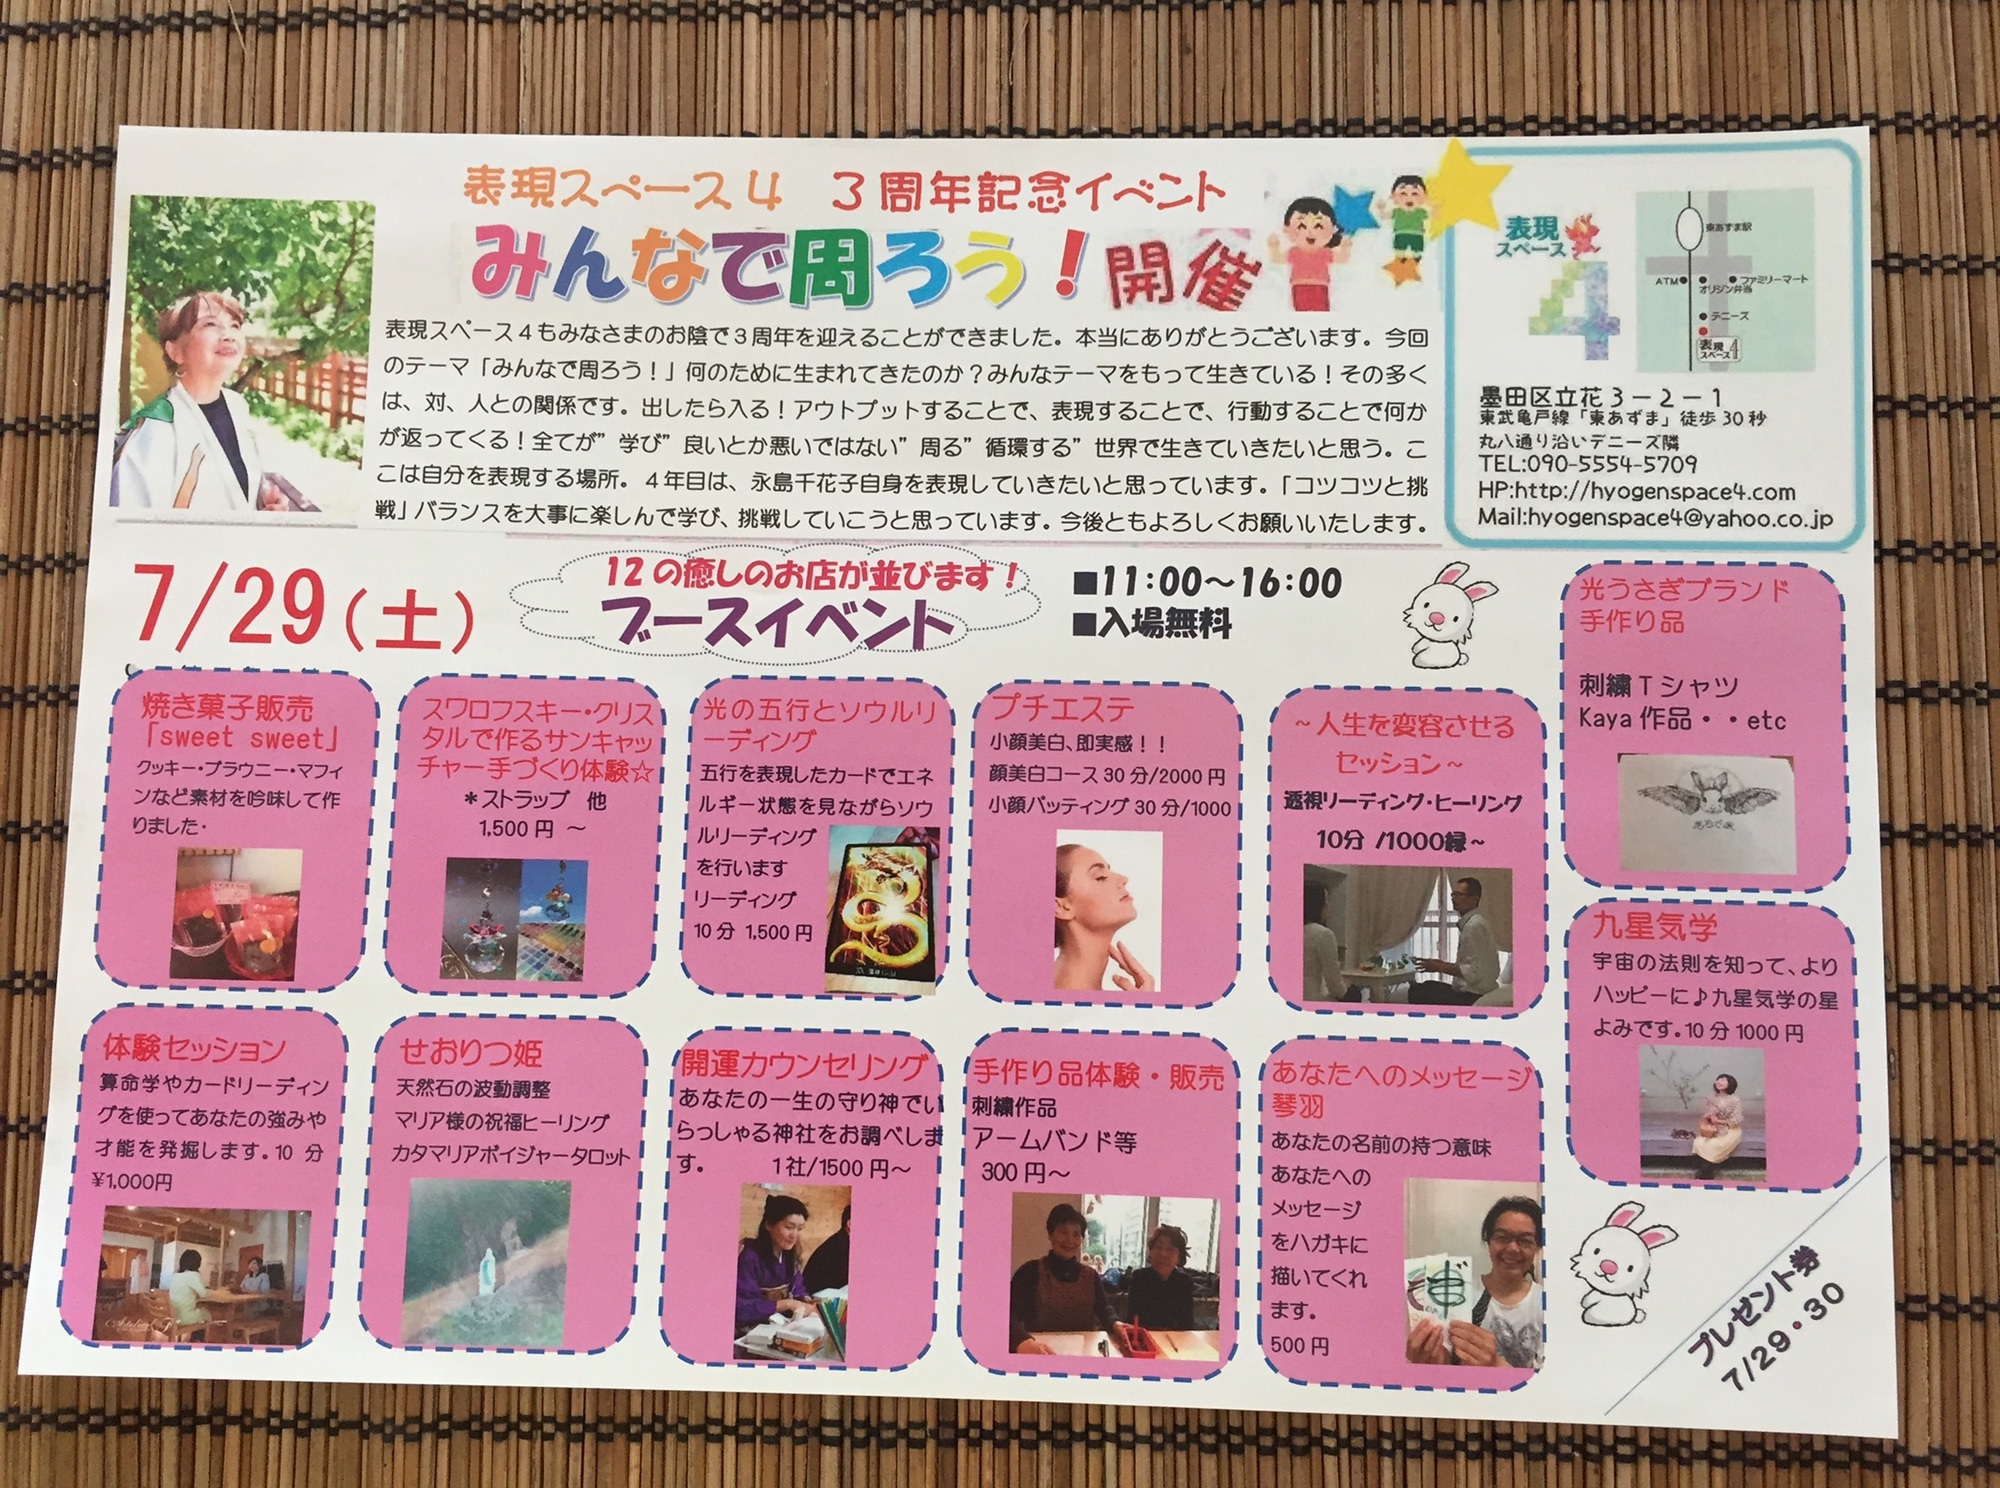 表現スペース4　3周年記念イベント
みんなで周ろう！開催
表現スペース4もみなさまのお陰で3周年を迎えることができました。本当にありがとうございます。今回
のテーマ「みんなで周ろう！」何のために生まれてきたのか？みんなテーマをもって生きている！その多く
は、対、人との関係です。出したら入る！アウトプットすることで、表現することで、行動することで何か
が返ってくる！全てが”学び”良いとか悪いではない”周る”循環する”世界で生きていきたいと思う。こ
こは自分を表現する場所。4年目は、永島千花子自身を表現していきたいと思っています。「コツコツと挑
戦」バランスを大事に楽しんで学び、挑戦していこうと思っています。今後ともよろしくお願いいたします。
表現
スペース
4
東あずま駅
ATM
ファミリーマート
オリジン弁当
デニーズ
表現
スペース4
墨田区立花3－2－1
東武亀戸線「東あずま」徒歩30秒
丸八通り沿いデニーズ隣
TEL:090-5554-5709
HP:http://hyogenspace4.com
Mail:hyogenspace4@yahoo.co.jp
7/29（土）
12の癒しのお店が並びます！
ブースイベント
■11：00～16：00
■入場無料
焼き菓子販売
「sweet sweet」
クッキー・ブラウニー・マフィ
ンなど素材を吟味して作
りました・
スワロフスキー・クリス
タルで作るサンキャッ
チャー手づくり体験☆
＊ストラップ　他
1,500円　～
光の五行とソウルリ
ーディング
五行を表現したカードでエネ
ルギー状態を見ながらソウ
ルリーディング
を行います
リーディング
10分 1,500円
プチエステ
小顔美白、即実感！！
顔美白コース30分/2000円
小顔パッティング30分/1000
～人生を変容させる
セッション～
透視リーディング・ヒーリング
10分 /1000縁～
光うさぎブランド
手作り品
刺繍Tシャツ
Kaya作品・・etc
九星気学
宇宙の法則を知って、より
ハッピーに♪九星気学の星
よみです。10分1000円
体験セッション
算命学やカードリーディン
グを使ってあなたの強みや
才能を発掘します。10分
¥1,000円
せおりつ姫
天然石の波動調整
マリア様の祝福ヒーリング
カタマリアボイジャータロット
開運カウンセリング
あなたの一生の守り神でい
らっしゃる神社をお調べしま
す。　1社/1500円～
手作り品体験・販売
刺繍作品
アームバンド等
300円～
あなたへのメッセージ
琴羽
あなたの名前の持つ意味
あなたへの
メッセージ
をハガキに
描いてくれ
ます。
500円
プレゼント券
7/29・30